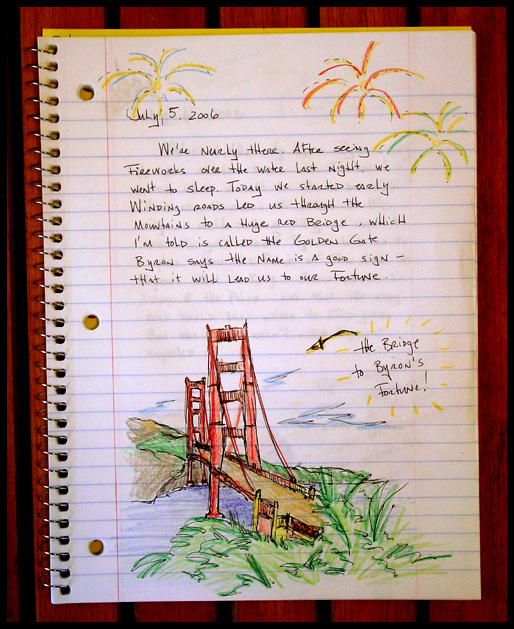 July 5, 2006
We're nearly there. After seeing
Fireworks over the water last night, we
went to sleep. Today we started early.
Winding roads led us through the
Mountains to a Huge red Bridge, which
I'm told is called the Golden Gate.
Byron says the name is a good sign –
that it will lead us to our Fortune.
the Bridge
to Byron's
Fortune!